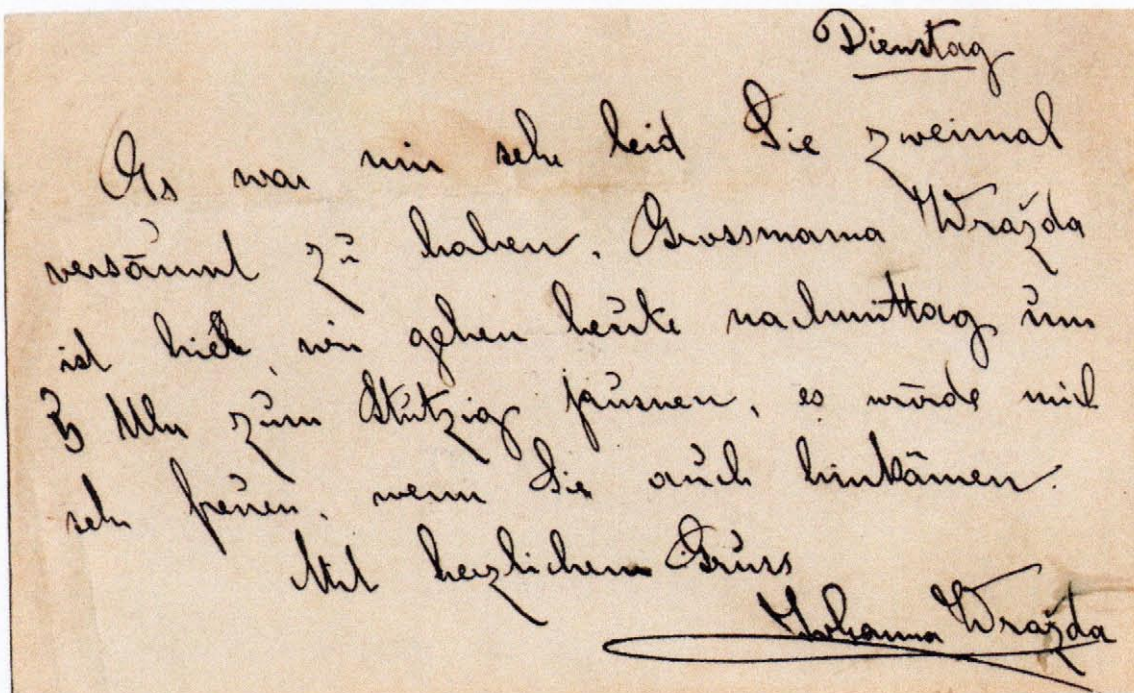 Dienstag
Es war mir sehr leid Sie zweimal
versäumt zu haben. Grossmama Wražda
ist hier, wir gehen heute nachmittag um
3 Uhr zum Stützig jausnen, es würde mich
sehr freuen, wenn Sie auch hinkämen.
Mit herzlichem Gruss
Johanna Wražda